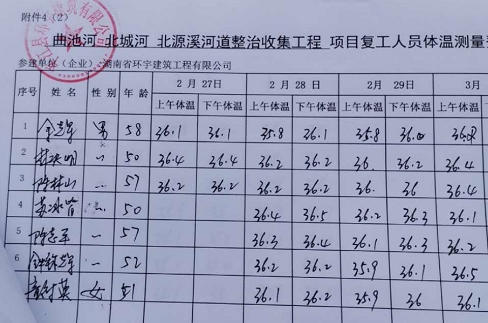 附件4（2）
曲池河 北城河 北源溪河道整治收集工程 项目复工人员体温测量
参建单位（企业）：湖南省环宇建筑工程有限公司
序号 姓名 性别 年龄 2月27日 2月28日 2月29日 3月
上午体温 下午体温 上午体温 下午体温 上午体温 下午体温 上午体温
1 男 58 36.1 36.1 35.8 36.1 35.8 36.0
2 〃 50 36.4 36.4 36.2 36.2 36. 36.2 36.4
3 〃 57 36.2 36.2 36.2 36.2 36. 36 36.4
4 50 36.4 36.5 36.2 36.3 36.1
5 陈志军 〃 57 36.3 36.4 36.1 36.3 36.2
6 〃 52 36.2 36.2 35.9 36.1 36.5
女 51 36.1 36.2 35.9 36 36.1